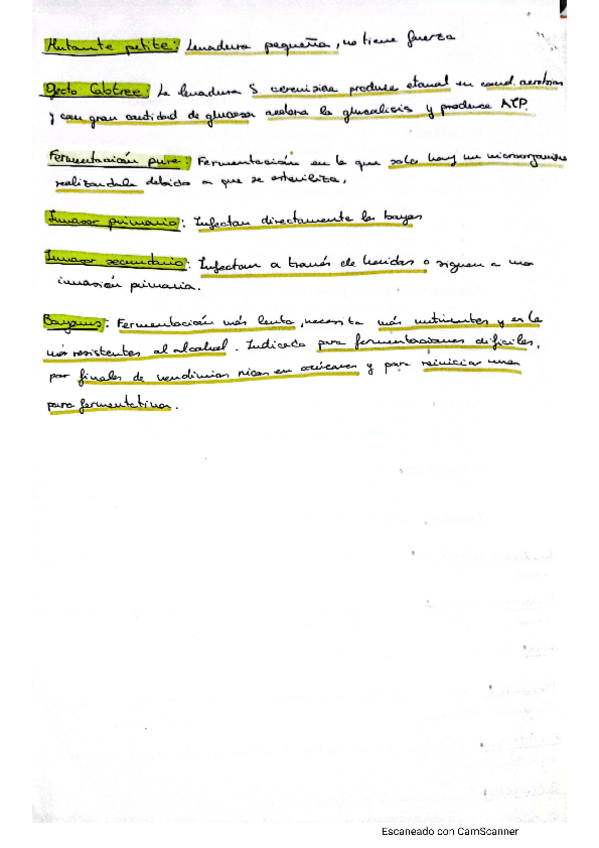 Mutante petite: Levadura pequeña, no tiene fuerza
Efecto Cabtree: La levadura S. cerevisiae produce etanol en cond. aerobias
y con gran cantidad de glucosa acelera la glucolisis y produce ATP.
Fermentación pura: Fermentación en la que solo hay un microorganismo
realizandola debido a que se esteriliza.
Invasor primario: Infectan directamente las bayas
Invasor secundario: Infectan a través de heridas o siguen a una
invasión primaria.
Bayanus: Fermentación más lenta, necesita más nutrientes y es la
más resistentes al alcohol. Indicada para fermentaciones difíciles,
por finales de vendimias ricas en azúcares y para reiniciar una
para fermentativa.
Escaneado con CamScanner